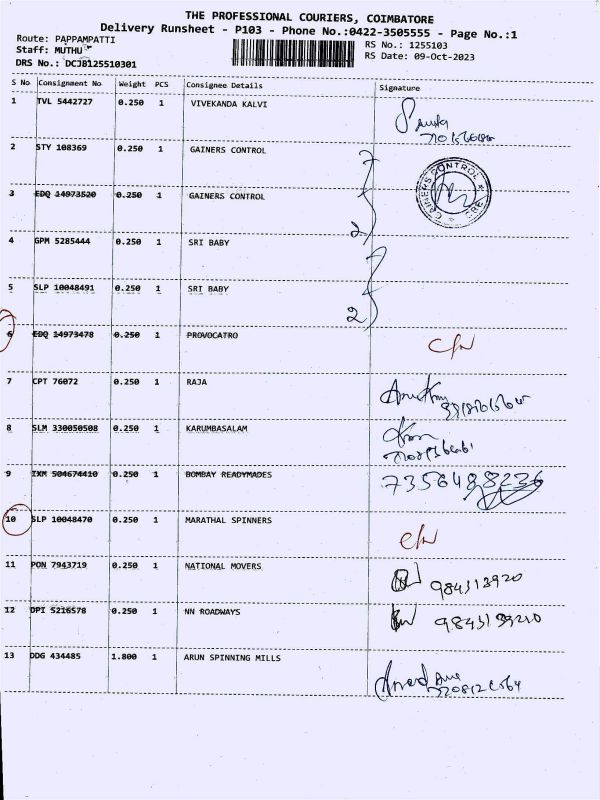 THE PROFESSIONAL COURIERS, COIMBATORE
Delivery Runsheet - P103 - Phone No.:0422-3505555 - Page No.:1
Route: PAPPAMPATTI RS No.: 1255103
Staff: MUTHU RS Date: 09-Oct-2023
DRS No.: DCJB125510301
S No Consignment No Weight PCS Consignee Details Signature
1 TVL 5442727 0.250 1 VIVEKANDA KALVI
2 STY 108369 0.250 1 GAINERS CONTROL
GAINERS CONTROL CBE
3 EDQ 14973520 0.250 1 GAINERS CONTROL
2
4 GPM 5285444 0.250 1 SRI BABY
5 SLP 10048491 0.250 1 SRI BABY
2
6 EDQ 14973478 0.250 1 PROVOCATRO
7 CPT 76072 0.250 1 RAJA
8 SLM 330050508 0.250 1 KARUMBASALAM
9 IXM 504674410 0.250 1 BOMBAY READYMADES 7356488236
10 SLP 10048470 0.250 1 MARATHAL SPINNERS
11 PON 7943719 0.250 1 NATIONAL MOVERS
12 DPI 5216578 0.250 1 NN ROADWAYS
13 DDG 434485 1.800 1 ARUN SPINNING MILLS